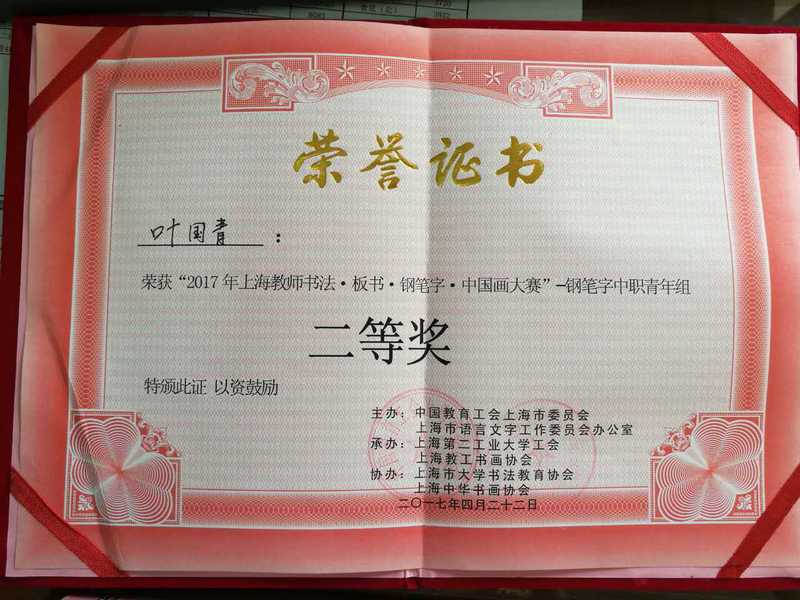 荣誉证书
叶国青：
荣获“2017年上海教师书法·板书·钢笔字·中国画大赛”-钢笔字中职青年组
二等奖
特颁此证 以资鼓励
主办：中国教育工会上海市委员会
上海市语言文字工作委员会办公室
承办：上海第二工业大学工会
上海教工书画协会
协办：上海市大学书法教育协会
上海中华书画协会
二〇一七年四月二十二日